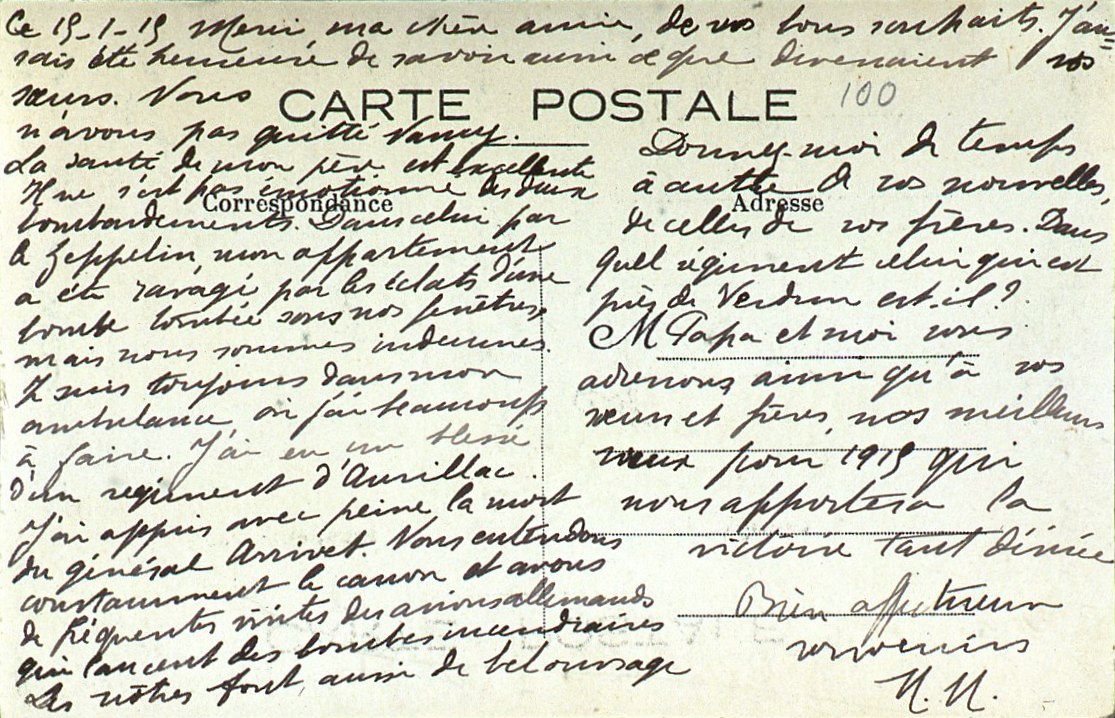 Ce 15-1-15 Merci, ma chère amie, de vos bons souhaits. J'au=
rais été heureuse de savoir aussi ce que devenaient vos
sœurs. Nous
CARTE POSTALE
100
n'avons pas quitté Nancy.
La santé de mon père est excellente
Il ne s'est pas émotionné des deux
Correspondance
bombardements. Dans celui par
le Zeppelin, mon appartement
a été ravagé par les éclats d'une
bombe tombée sous nos fenêtres
mais nous sommes indemnes.
Je suis toujours dans mon
ambulance où j'ai beaucoup
à faire. J'ai eu un blessé
d'un régiment d'Aurillac.
J'ai appris avec peine la mort
du général Arrivet. Nous entendons
constamment le canon et avons
de fréquentes visites des avions allemands
qui lancent des bombes incendiaires
Les nôtres font aussi de bel ouvrage
Donnez-moi de temps
à autre de vos nouvelles,
Adresse
de celles de vos frères. Dans
quel régiment celui qui est
près de Verdun est-il?
M Papa et moi vous
adressons ainsi qu'à vos
sœurs et frères, nos meilleurs
vœux pour 1915 qui
nous apportera la
victoire tant désirée
Bien affectueux
souvenirs
M. M.